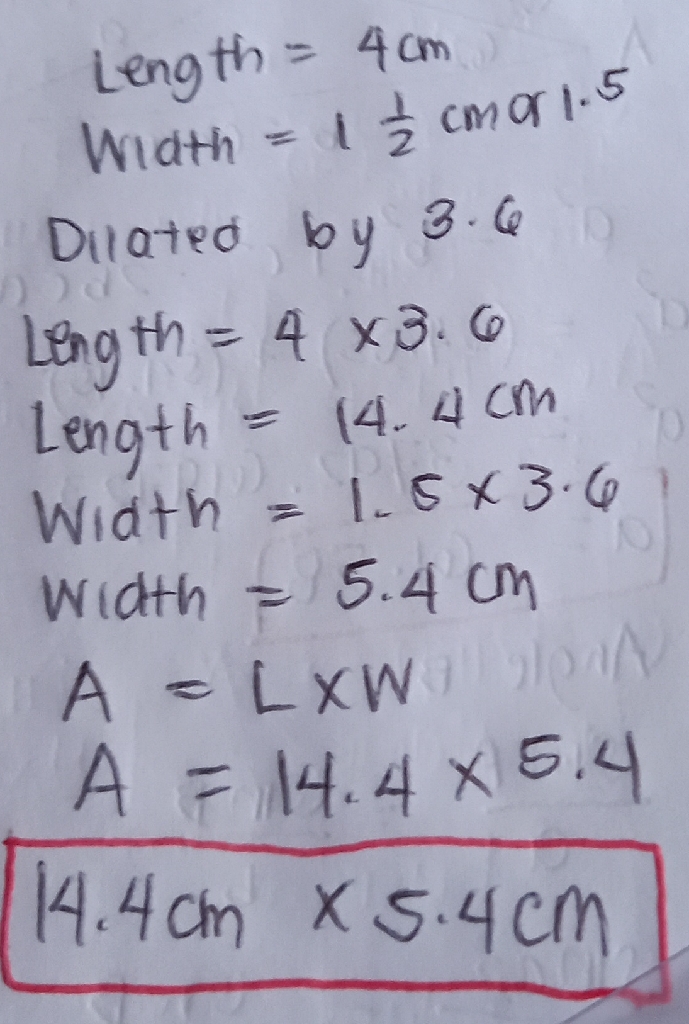 Length = 4 cm
Width = 1 1/2 cm or 1.5
Dilated by 3.6
Length = 4 x 3.6
Length = 14.4 cm
Width = 1.5 x 3.6
Width = 5.4 cm
A = L x W
A = 14.4 x 5.4
14.4 cm x 5.4 cm